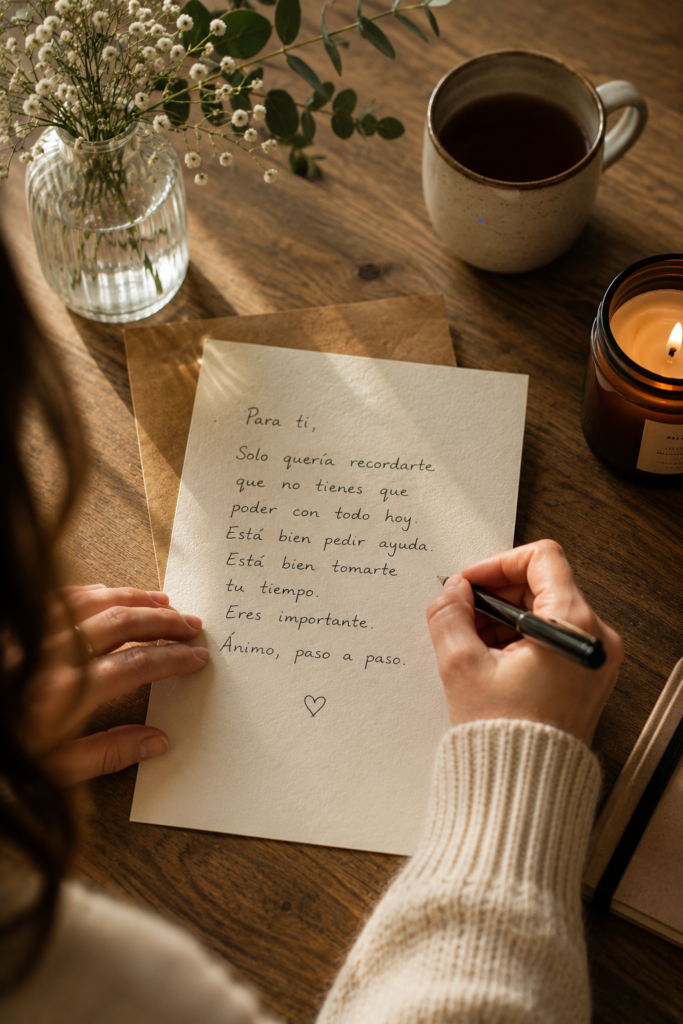 Para ti,
Solo quería recordarte
que no tienes que
poder con todo hoy.
Está bien pedir ayuda.
Está bien tomarte
tu tiempo.
Eres importante.
Ánimo, paso a paso.